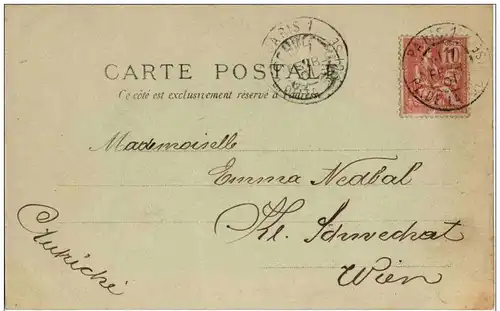 CARTE POSTALE
Ce côté est exclusivement réservé à l'adresse
Mademoiselle
Emma Nedbal
Kl. Schwechat
Wien
PARIS 1
PARIS 1